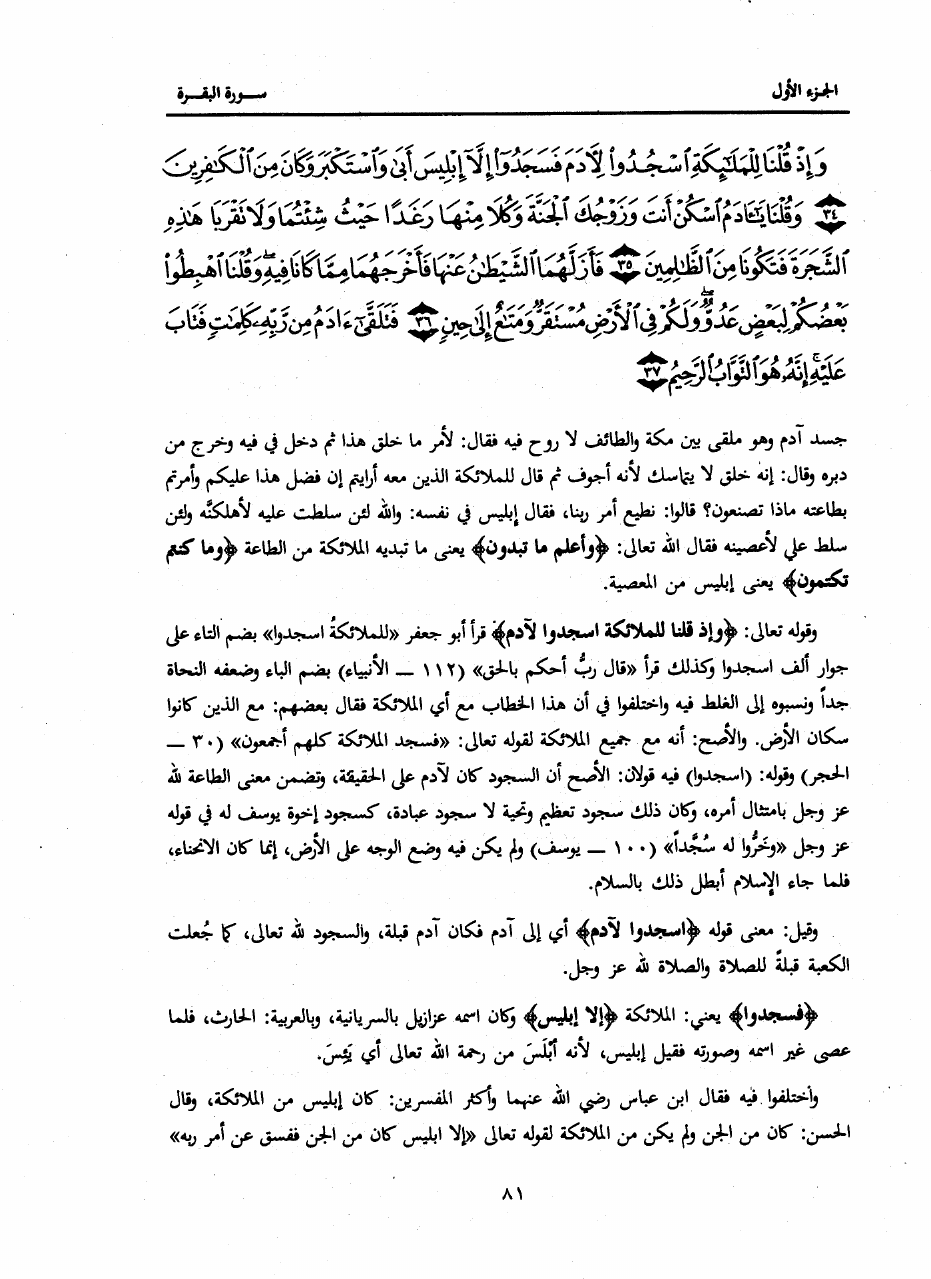 الجزء الأول
سورة البقرة
وَإِذْ قُلْنَا لِلْمَلَٰٓئِكَةِ ٱسْجُدُوا۟ لِأَدَمَ فَسَجَدُوٓا۟ إِلَّآ إِبْلِيسَ أَبَىٰ وَٱسْتَكْبَرَ وَكَانَ مِنَ ٱلْكَٰفِرِينَ
٣٤ وَقُلْنَا يَٰٓـَٔادَمُ ٱسْكُنْ أَنتَ وَزَوْجُكَ ٱلْجَنَّةَ وَكُلَا مِنْهَا رَغَدًا حَيْثُ شِئْتُمَا وَلَا تَقْرَبَا هَٰذِهِ
ٱلشَّجَرَةَ فَتَكُونَا مِنَ ٱلظَّٰلِمِينَ ٣٥ فَأَزَلَّهُمَا ٱلشَّيْطَٰنُ عَنْهَا فَأَخْرَجَهُمَا مِمَّا كَانَا فِيهِ ۖ وَقُلْنَا ٱهْبِطُوا۟
بَعْضُكُمْ لِبَعْضٍ عَدُوٌّ ۖ وَلَكُمْ فِى ٱلْأَرْضِ مُسْتَقَرٌّ وَمَتَٰعٌ إِلَىٰ حِينٍ ٣٦ فَتَلَقَّىٰٓ ءَادَمُ مِن رَّبِّهِۦ كَلِمَٰتٍ فَتَابَ
عَلَيْهِ ۚ إِنَّهُۥ هُوَ ٱلتَّوَّابُ ٱلرَّحِيمُ ٣٧
جسد آدم وهو ملقى بين مكة والطائف لا روح فيه فقال: لأمر ما خلق هذا ثم دخل في فيه وخرج من
دبره وقال: إنه خلق لا يتماسك لأنه أجوف ثم قال للملائكة الذين معه أرايتم إن فضل هذا عليكم وأمرتم
بطاعته ماذا تصنعون؟ قالوا: نطيع أمر ربنا، فقال إبليس في نفسه: والله لئن سلطت عليه لأهلكنَّه ولئن
سلط علي لأعصينه فقال الله تعالى: ﴿وأعلم ما تبدون﴾ يعنى ما تبديه الملائكة من الطاعة ﴿وما كنتم
تكتمون﴾ يعنى إبليس من المعصية.
وقوله تعالى: ﴿وإذ قلنا للملائكة اسجدوا لآدم﴾ قرأ أبو جعفر «للملائكةُ اسجدوا» بضم التاء على
جوار ألف اسجدوا وكذلك قرأ «قال ربُّ أحكم بالحق» (١١٢ ــ الأنبياء) بضم الباء وضعفه النحاة
جداً ونسبوه إلى الغلط فيه واختلفوا في أن هذا الخطاب مع أي الملائكة فقال بعضهم: مع الذين كانوا
سكان الأرض. والأصح: أنه مع جميع الملائكة لقوله تعالى: «فسجد الملائكة كلهم أجمعون» (٣٠ ــ
الحجر) وقوله: (اسجدوا) فيه قولان: الأصح أن السجود كان لآدم على الحقيقة، وتضمن معنى الطاعة لله
عز وجل بامتثال أمره، وكان ذلك سجود تعظيم وتحية لا سجود عبادة، كسجود إخوة يوسف له في قوله
عز وجل «وخَرُّوا له سُجَّداً» (١٠٠ ــ يوسف) ولم يكن فيه وضع الوجه على الأرض، إنما كان الانحناء،
فلما جاء الإسلام أبطل ذلك بالسلام.
وقيل: معنى قوله ﴿اسجدوا لآدم﴾ أي إلى آدم فكان آدم قبلة، والسجود لله تعالى، كما جُعلت
الكعبة قبلةً للصلاة والصلاة لله عز وجل.
﴿فسجدوا﴾ يعني: الملائكة ﴿إلا إبليس﴾ وكان اسمه عزازيل بالسريانية، وبالعربية: الحارث، فلما
عصى غير اسمه وصورته فقيل إبليس، لأنه أَبْلَسَ من رحمة الله تعالى أي يَئِسَ.
وأختلفوا فيه فقال ابن عباس رضي الله عنهما وأكثر المفسرين: كان إبليس من الملائكة، وقال
الحسن: كان من الجن ولم يكن من الملائكة لقوله تعالى «إلا ابليس كان من الجن ففسق عن أمر ربه»
٨١